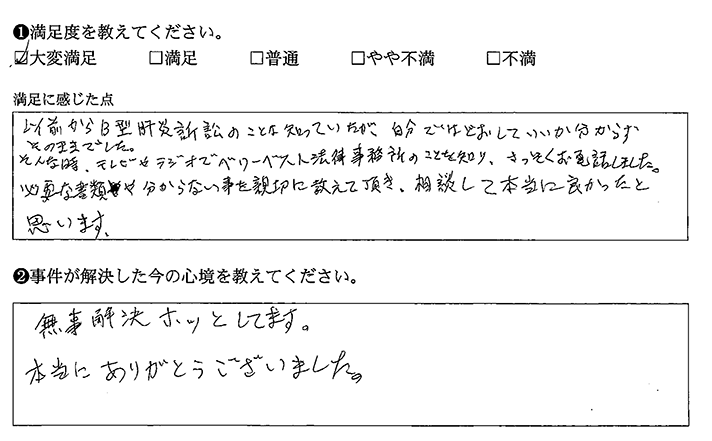 ❶満足度を教えてください。
☑大変満足 □満足 □普通 □やや不満 □不満
満足に感じた点
以前からB型肝炎訴訟のことは知っていたが、自分ではどおしていいか分からず
そのままでした。
そんな時、テレビやラジオでベリーベスト法律事務所のことを知り、さっそくお電話しました。
必要な書類や分からない事を親切に教えて頂き、相談して本当に良かったと
思います。
❷事件が解決した今の心境を教えてください。
無事解決ホッとしてます。
本当にありがとうございました。